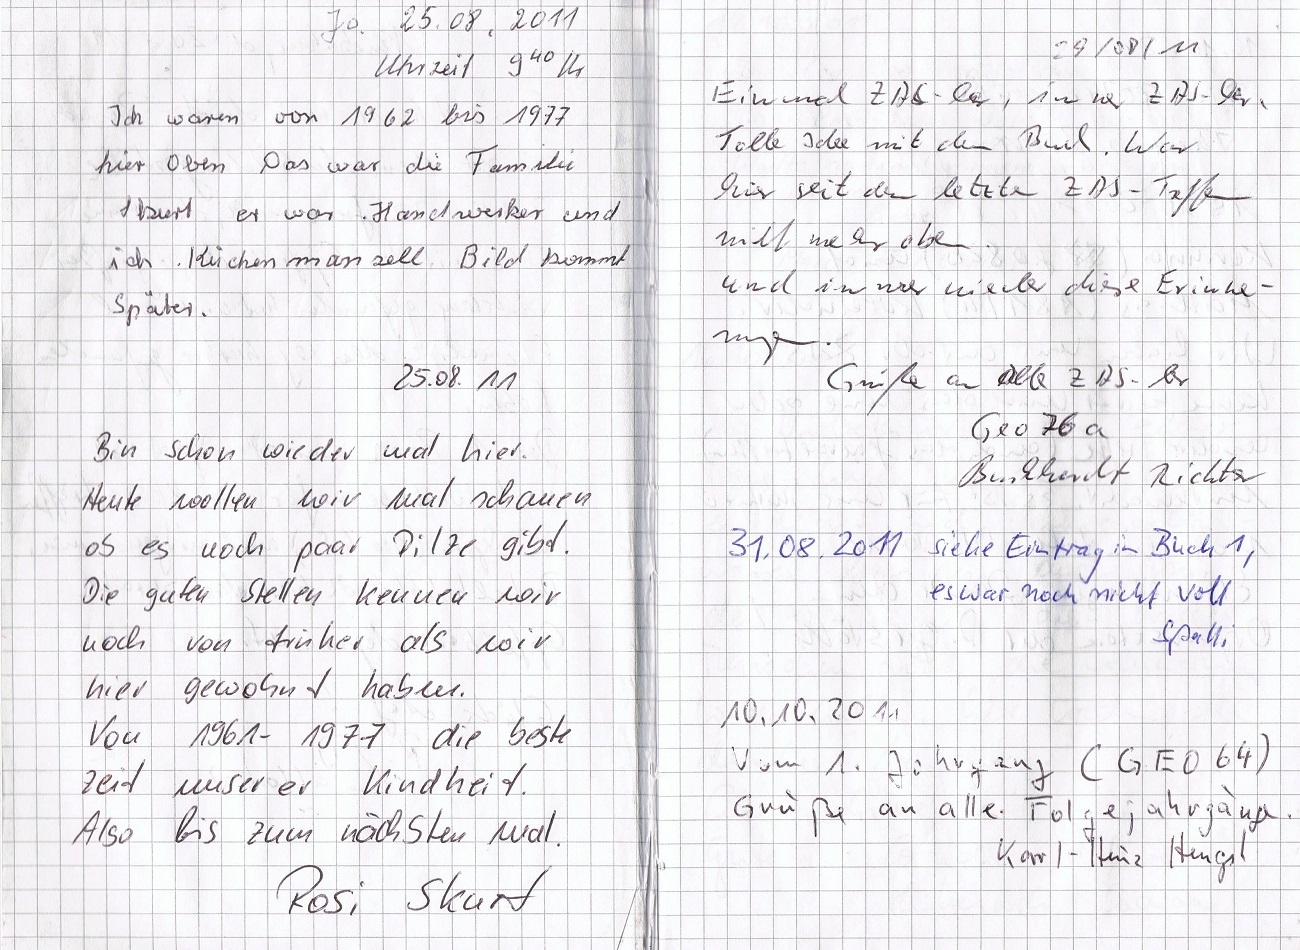 Do. 25.08.2011
Uhrzeit 9⁴⁰ Uhr
Ich waren von 1962 bis 1977
hier Oben Das war die Familie
Skurt er war Handwerker und
ich Küchenmansell. Bild kommt
Später.
25.08.11
Bin schon wieder mal hier.
Heute wollen wir mal schauen
ob es noch paar Pilze gibt.
Die guten Stellen kennen wir
noch von früher als wir
hier gewohnt haben.
Von 1961- 1977 die beste
Zeit unserer Kindheit.
Also bis zum nächsten Mal.
Rosi Skurt
29/08/11
Einmal ZAS-ler, immer ZAS-ler.
Tolle Idee mit dem Buch. War
hier seit dem letzten ZAS-Treffen
nicht mehr oben.
und immer wieder diese Erinne-
rungen.
Grüße an alle ZAS-ler
Geo 76 a
Burkhardt Richter
31.08.2011 siehe Eintrag in Buch 1,
es war noch nicht voll
10.10.2011
Vom 1. Jahrgang (GEO 64)
Grüße an alle Folgejahrgänge.
Karl-Heinz Hengst